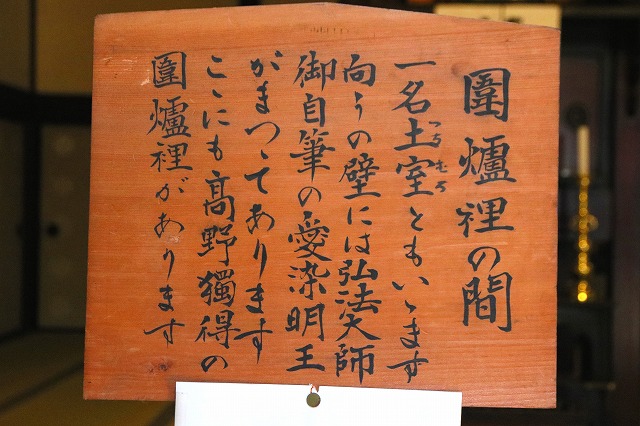 圍爐裡の間
一名土室ともいゝます
つちむろ
向うの壁には弘法大師
御自筆の愛染明王
がまつゝてあります
こゝにも高野獨得の
圍爐裡があります